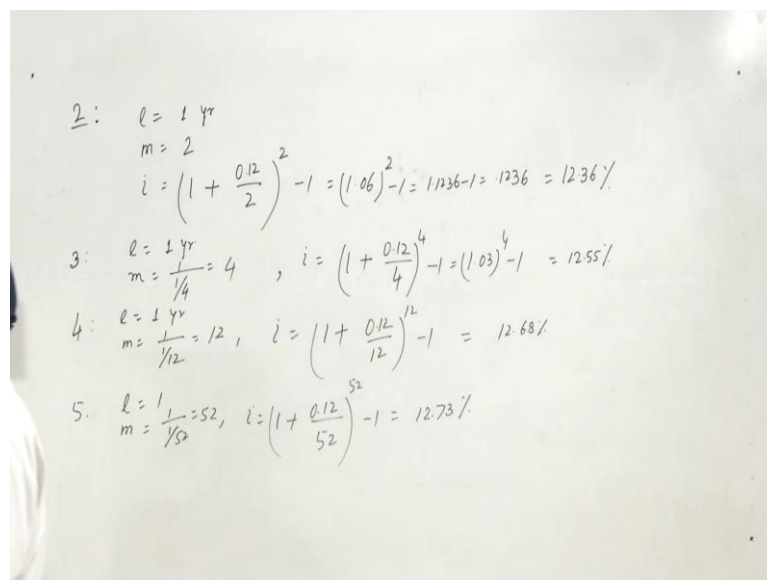 2: l = 1 yr
m = 2
i = (1 + 0.12/2)^2 - 1 = (1.06)^2 - 1 = 1.1236 - 1 = .1236 = 12.36%
3: l = 1 yr
m = 1/(1/4) = 4 , i = (1 + 0.12/4)^4 - 1 = (1.03)^4 - 1 = 12.55%
4: l = 1 yr
m = 1/(1/12) = 12 , i = (1 + 0.12/12)^12 - 1 = 12.68%
5. l = 1
m = 1/(1/52) = 52, i = (1 + 0.12/52)^52 - 1 = 12.73%